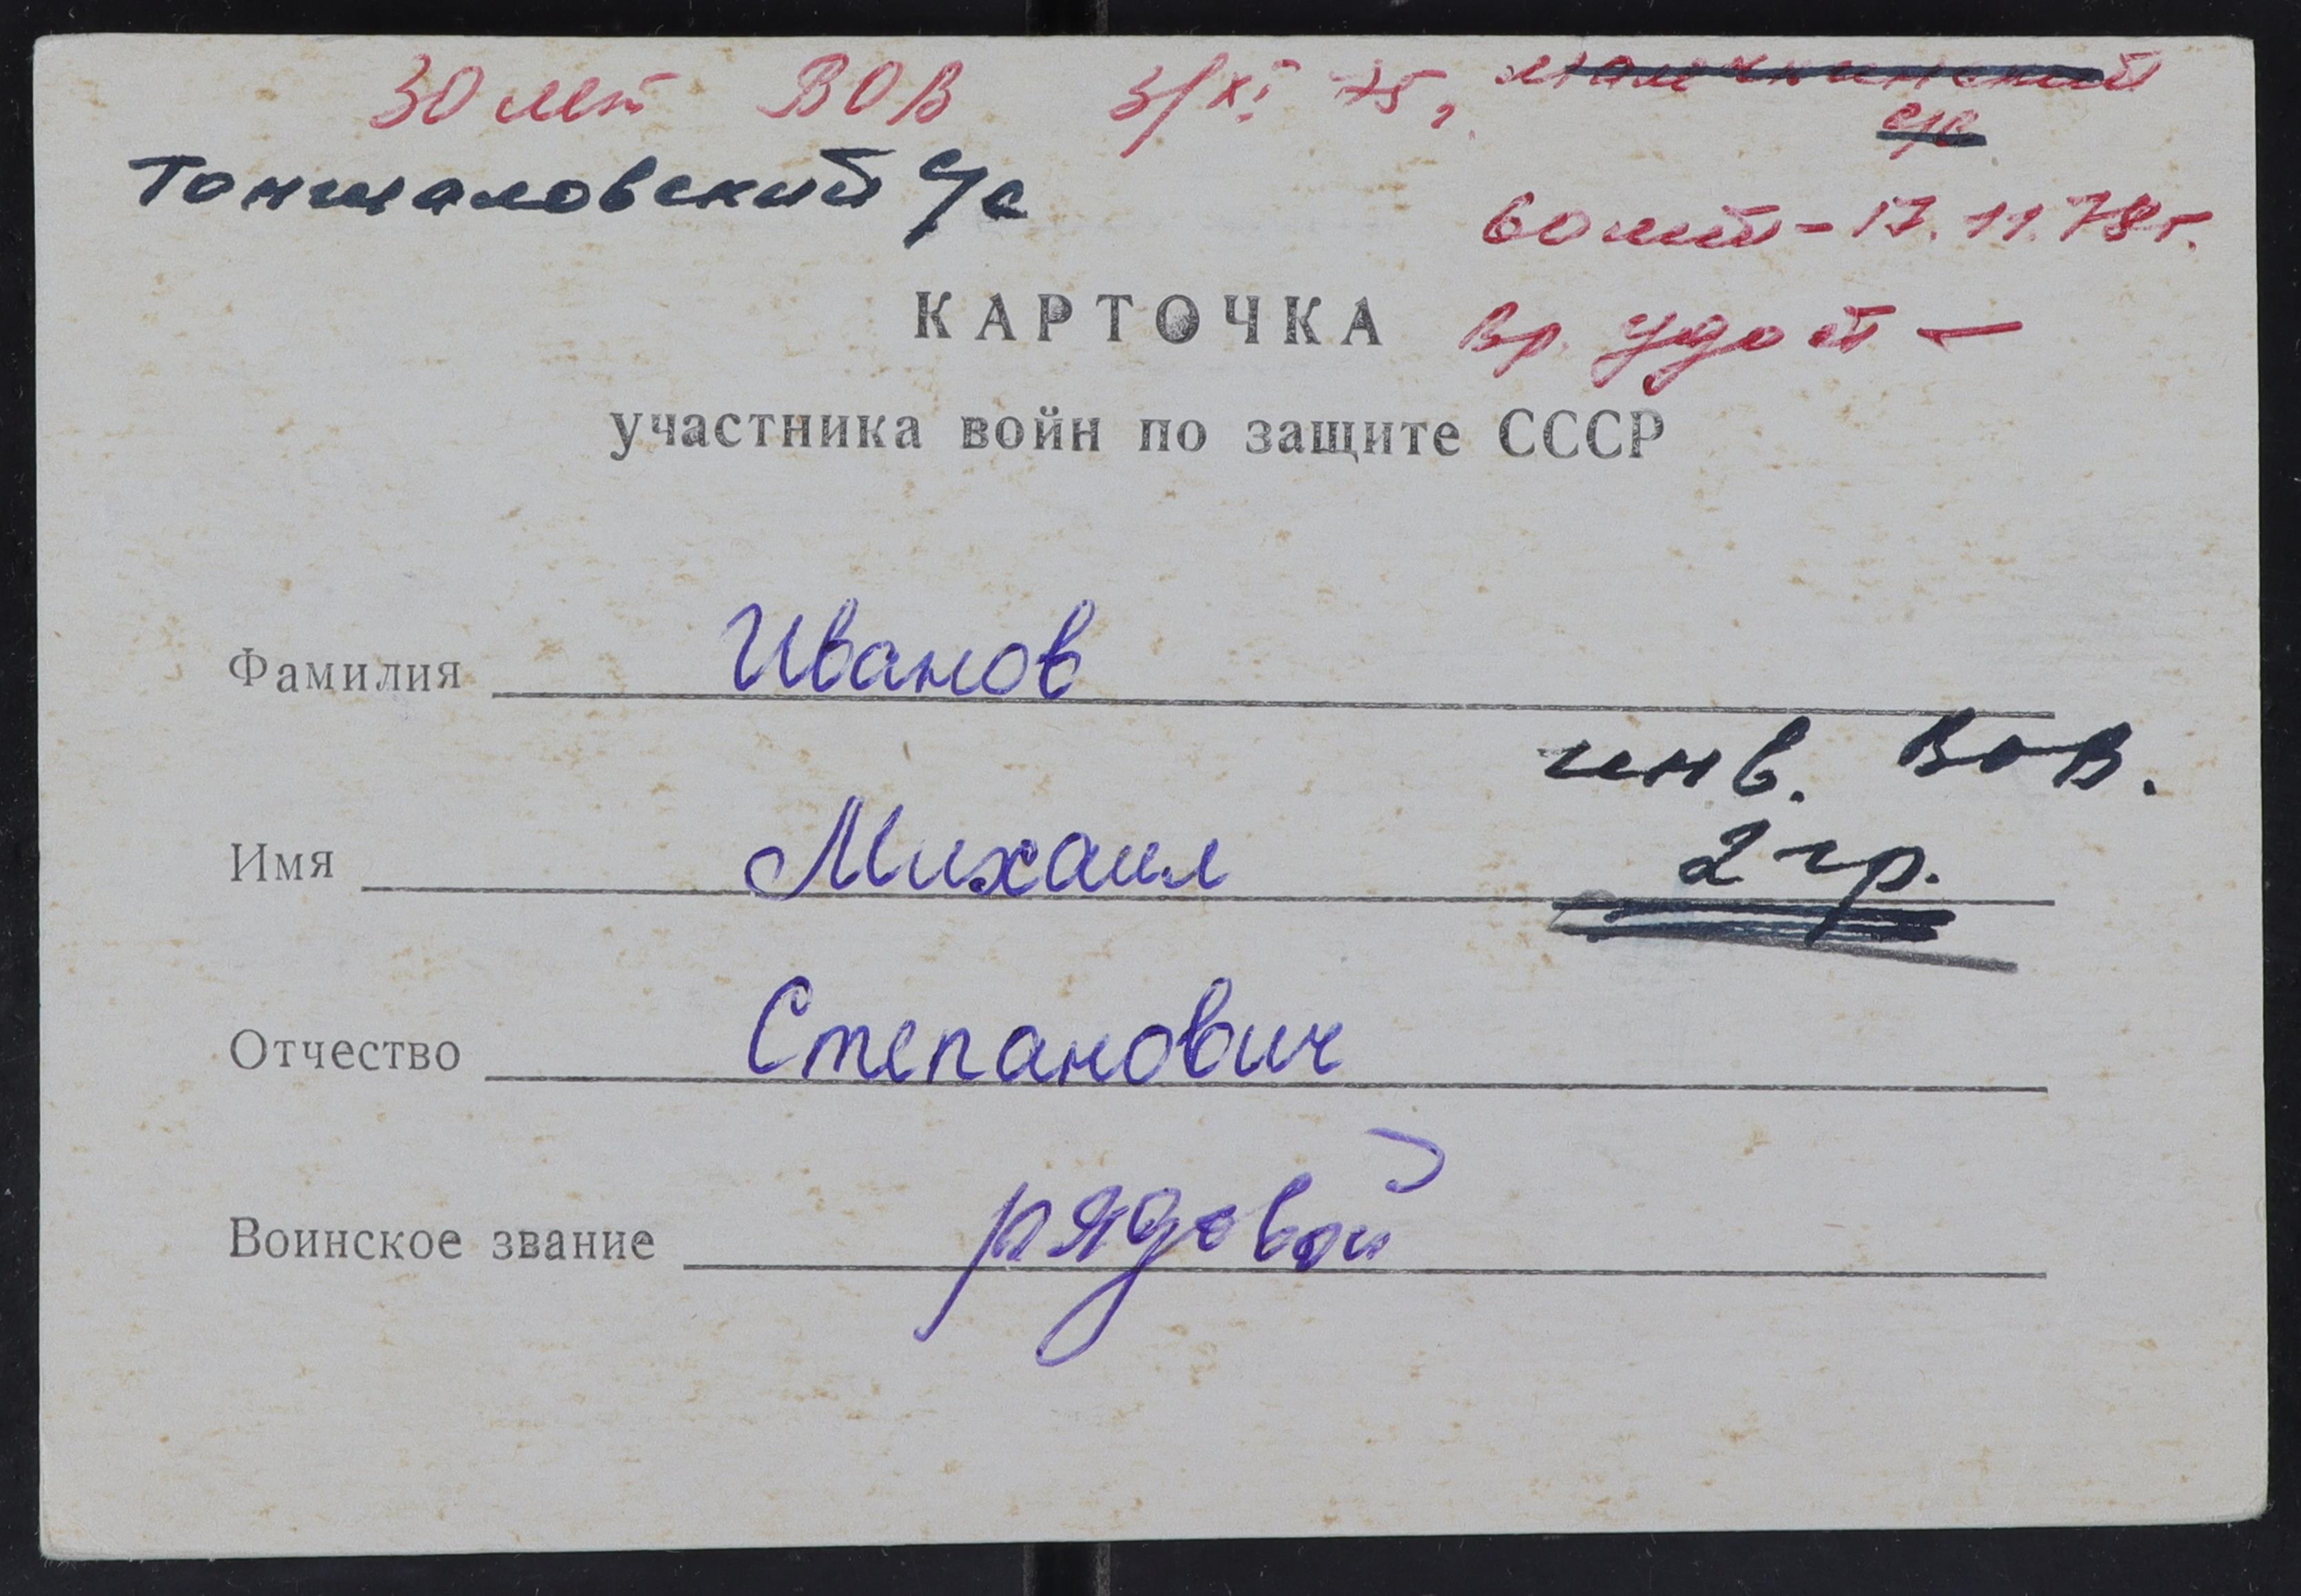 30 лет ВОВ 3/XI 75г.
Тоншаловский с/с
60 лет - 17.11.78г.
КАРТОЧКА
вр. удост —
участника войн по защите СССР
Фамилия Иванов
инв. ВОВ.
Имя Михаил 2 гр.
Отчество Степанович
Воинское звание рядовой